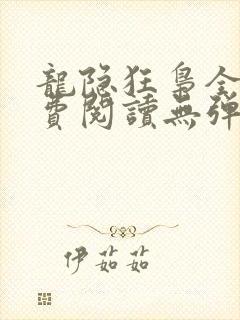 龍隐狂梟全
費閱讀無彈
伊茹茹